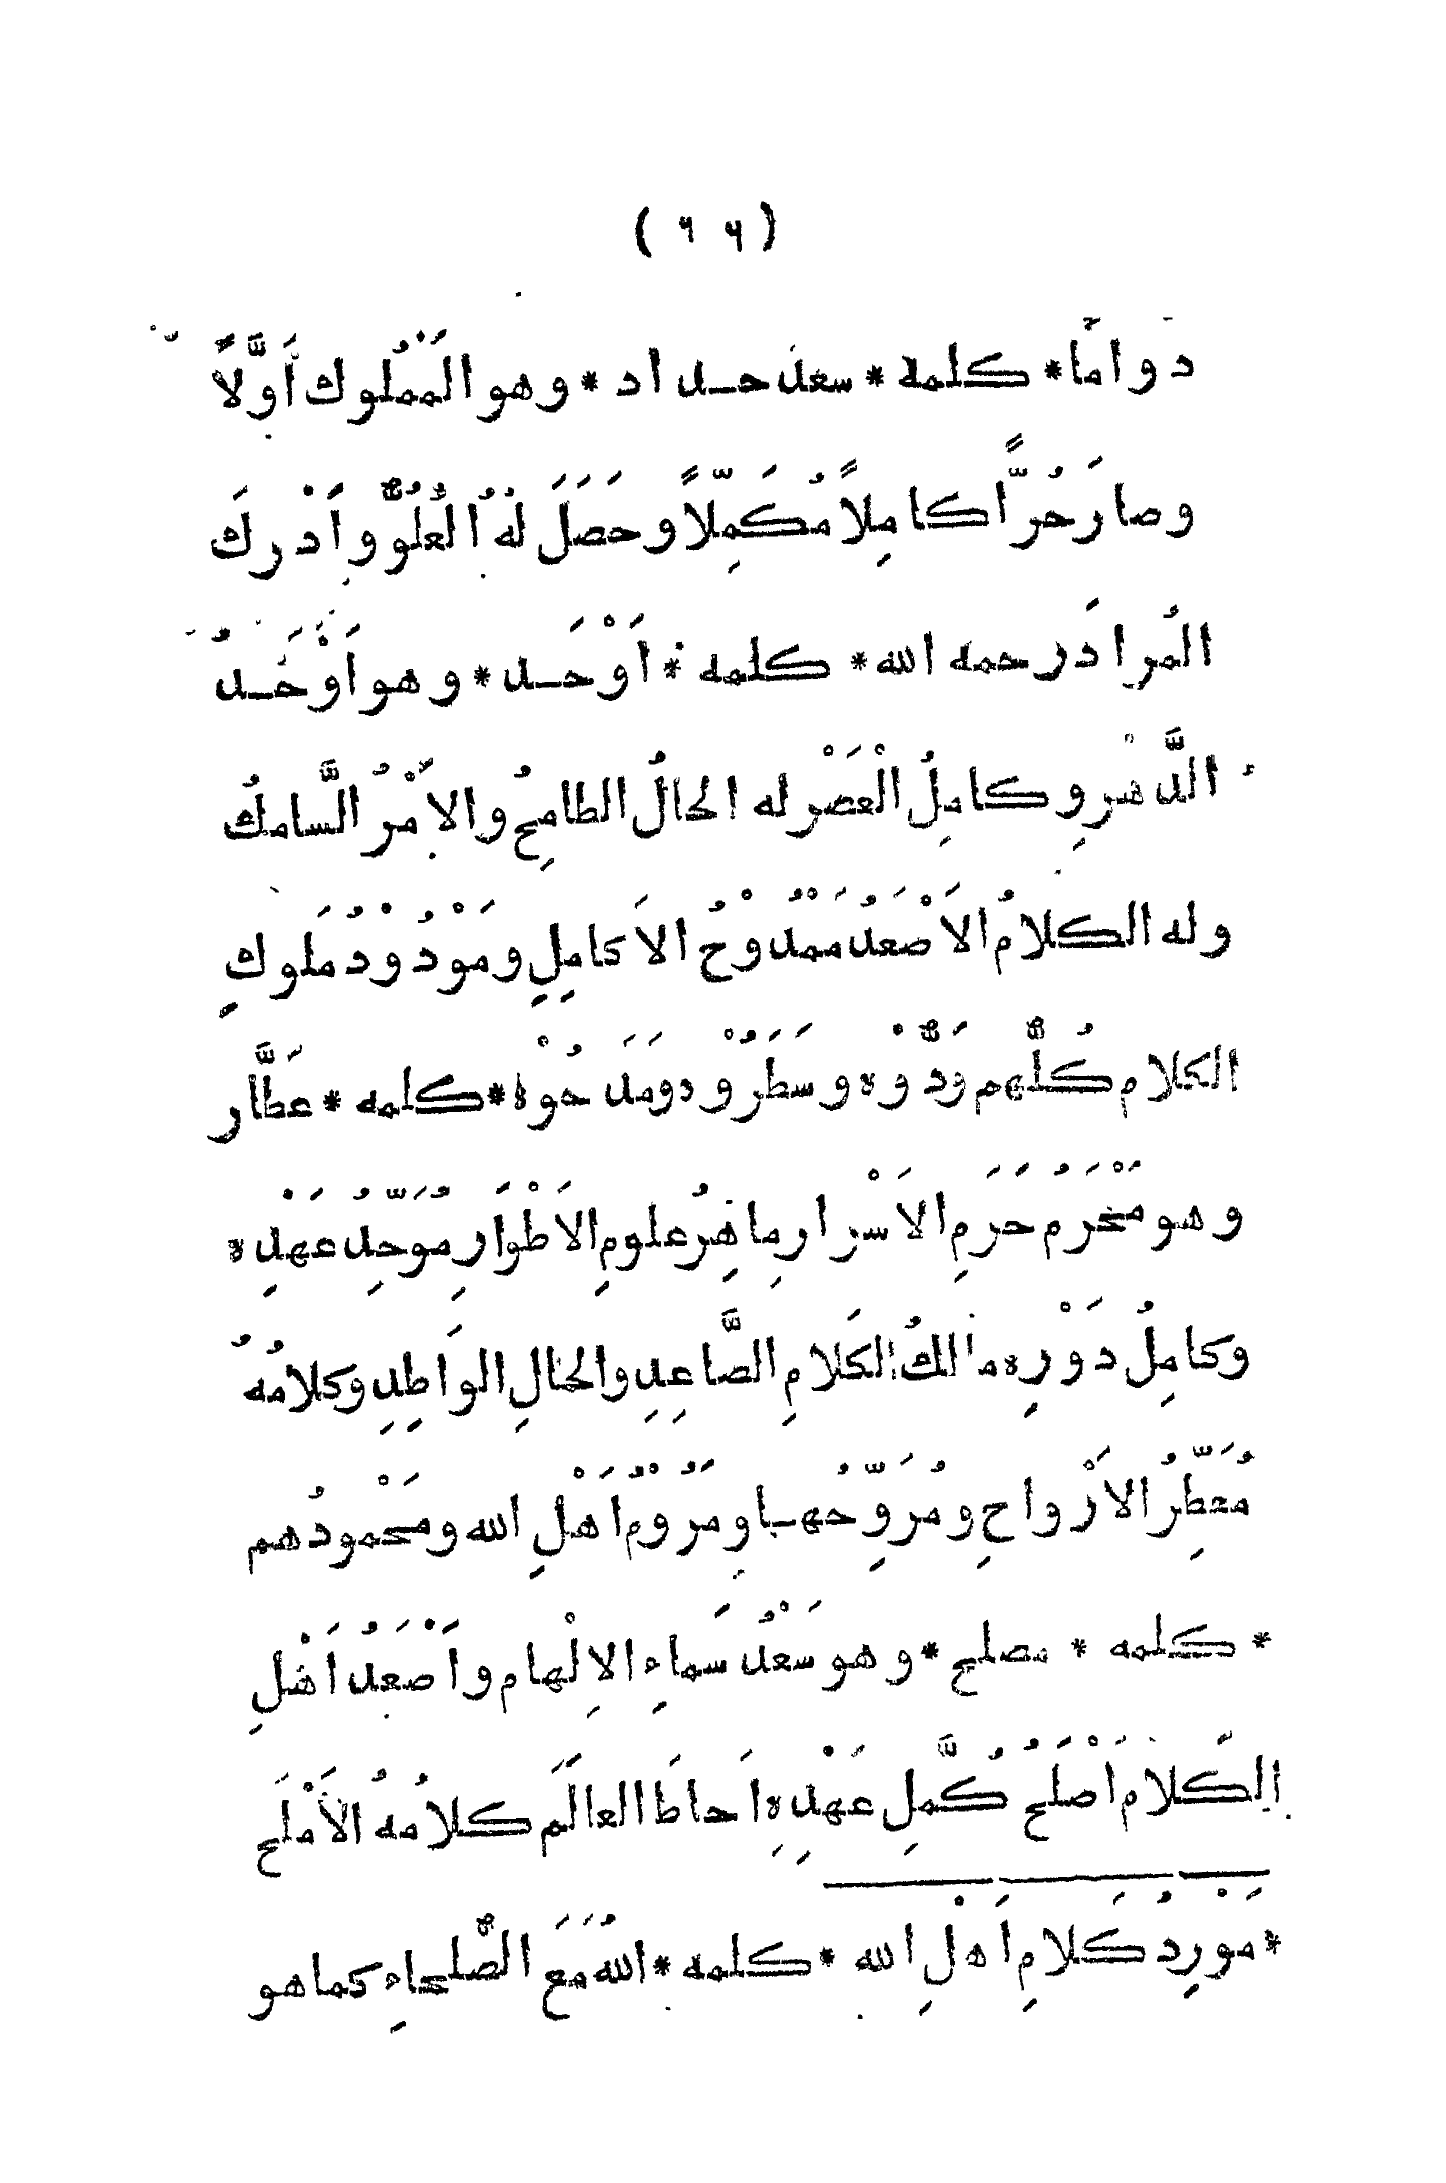 ( ٦٦ )
دواما * كلمه * سعد حداد * وهو المَمْلُوك اَوَّلاً
وصارَ حُرًّا كامِلاً مُكَمِّلاً وحَصَلَ لهُ العُلُوُّ واَدْرك
المُرادَ رحمه الله * كلمه * اَوْحَد * وهو اَوْحَدُ
الدَّهْرِ وكامِلُ العَصْر له الحالُ الطامِحُ والاَمْرُ السَّامكُ
وله الكلامُ الاَصْعَدُ مَمْدُوْحُ الاَكامِلِ ومَوْدُوْدُ مَلوكِ
الكلام كُلُّهم وَدُّوْه وسَطَرُوْه ومَدَحُوْهُ * كلمه * عَطَّار
وهو مَحْرَمُ حَرَمِ الاَسْرار ماهِرُ علومِ الاَطْوَارِ مُوَحِّدُ عَهْدِه
وكامِلُ دَوْرِه مالكُ الكَلامِ الصَّاعِدِ والحالِ الوَاطِدِ وكلامُهُ
مُعَطِّرُ الاَرْواحِ ومُرَوِّحُها ومَرُوْمُ اَهْلِ الله ومَحْمُودُهم
* كلمه * مصلح * وهو سَعْدُ سَمَاءِ الاِلْهام واَصْعَدُ اَهْلِ
الكَلام اَصْلَحُ كُمَّلِ عَهْدِهِ اَحاطَ العالَم كلامُهُ الاَمْلَح
* مَوْرِدُ كَلامِ اَهْلِ الله * كلمه * اللهُ مَعَ الصُّلحاءِ كماهو